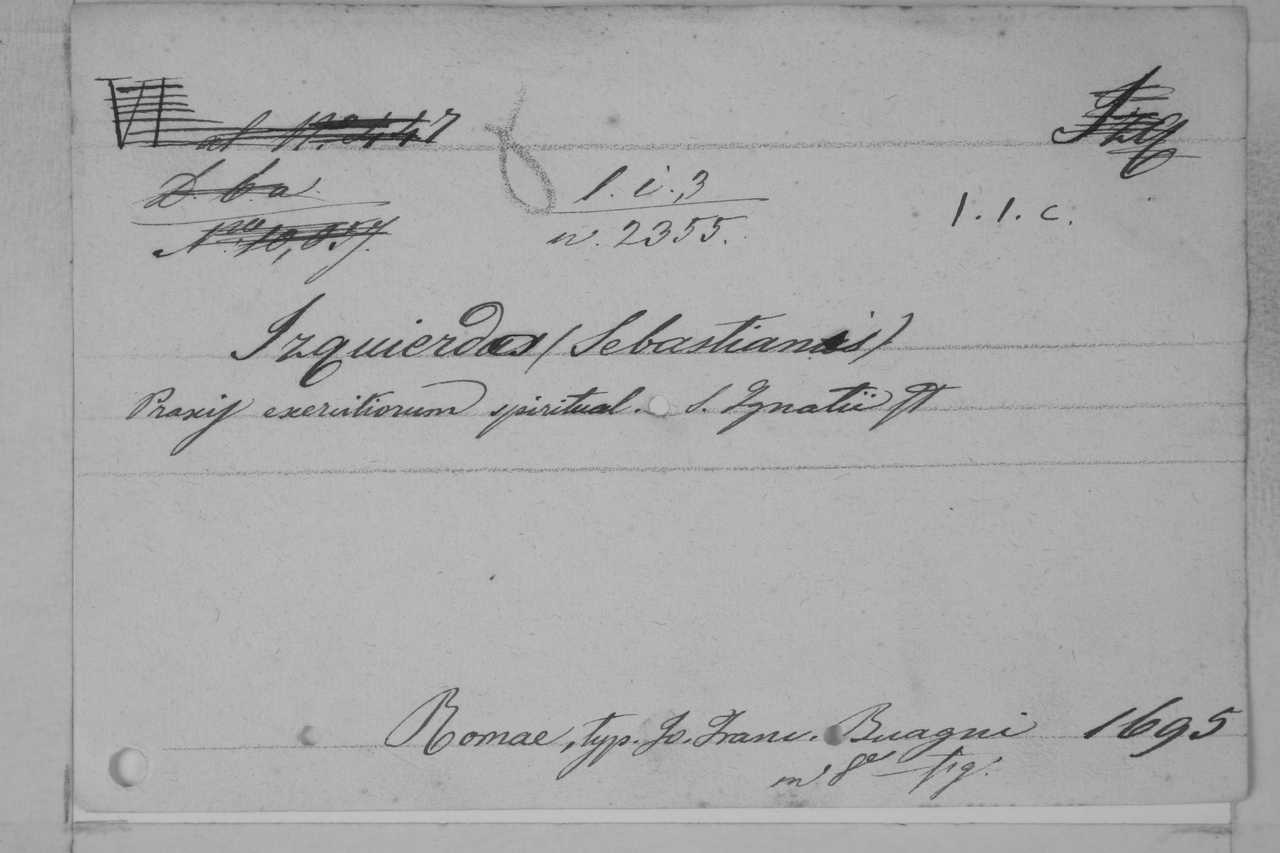 al N.º 447
Izq
D. b. a.
l. i. 3
Nro 10,857.
n. 2355.
1. 1. c.
Izquierdos (Sebastianis)
Praxis exercitiorum spiritual. S. Ignatii
Romae, typ. Jo. Franc. Buagni 1695
in 8º fig.